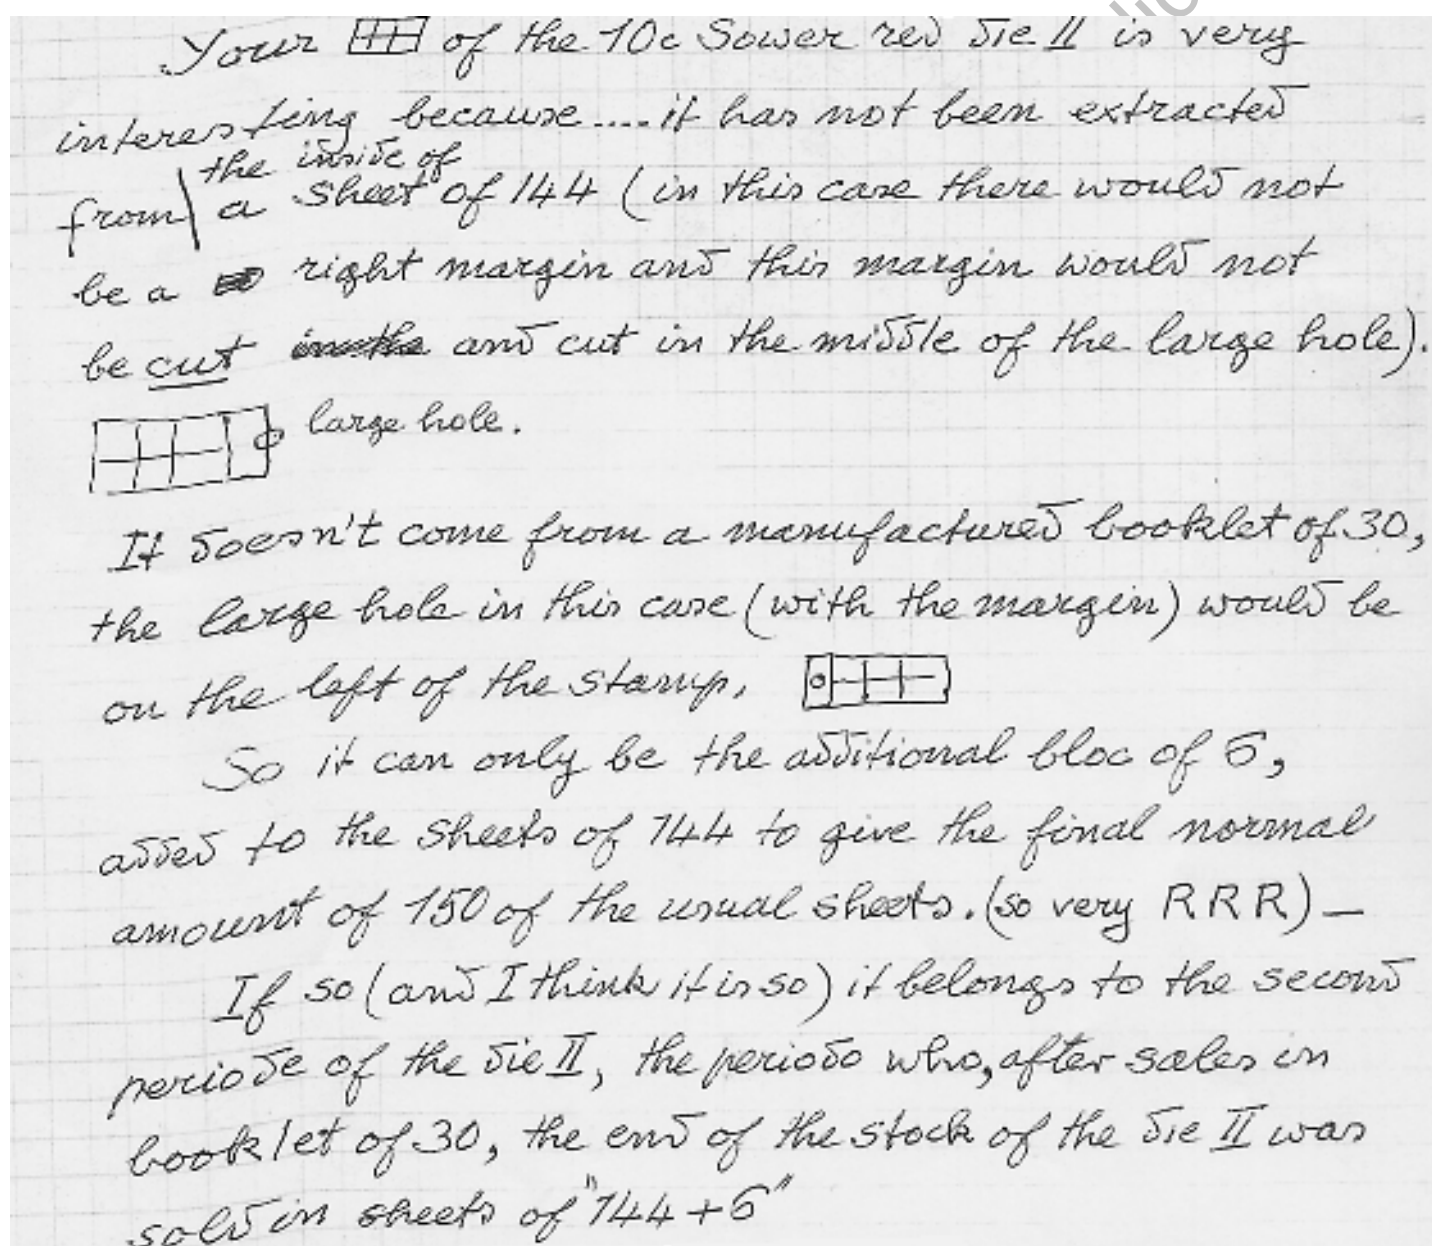 Your of the 10c Sower red die II is very
interesting because.... it has not been extracted
the inside of
from a sheet of 144 (in this case there would not
be a right margin and this margin would not
be cut in the and cut in the middle of the large hole).
large hole.
It doesn't come from a manufactured booklet of 30,
the large hole in this case (with the margin) would be
on the left of the stamp.
So it can only be the additional bloc of 6,
added to the sheets of 144 to give the final normal
amount of 150 of the usual sheets. (so very RRR) —
If so (and I think it is so) it belongs to the second
periode of the die II, the periodo who, after sales in
booklet of 30, the end of the stock of the die II was
sold in sheets of "144 + 6"